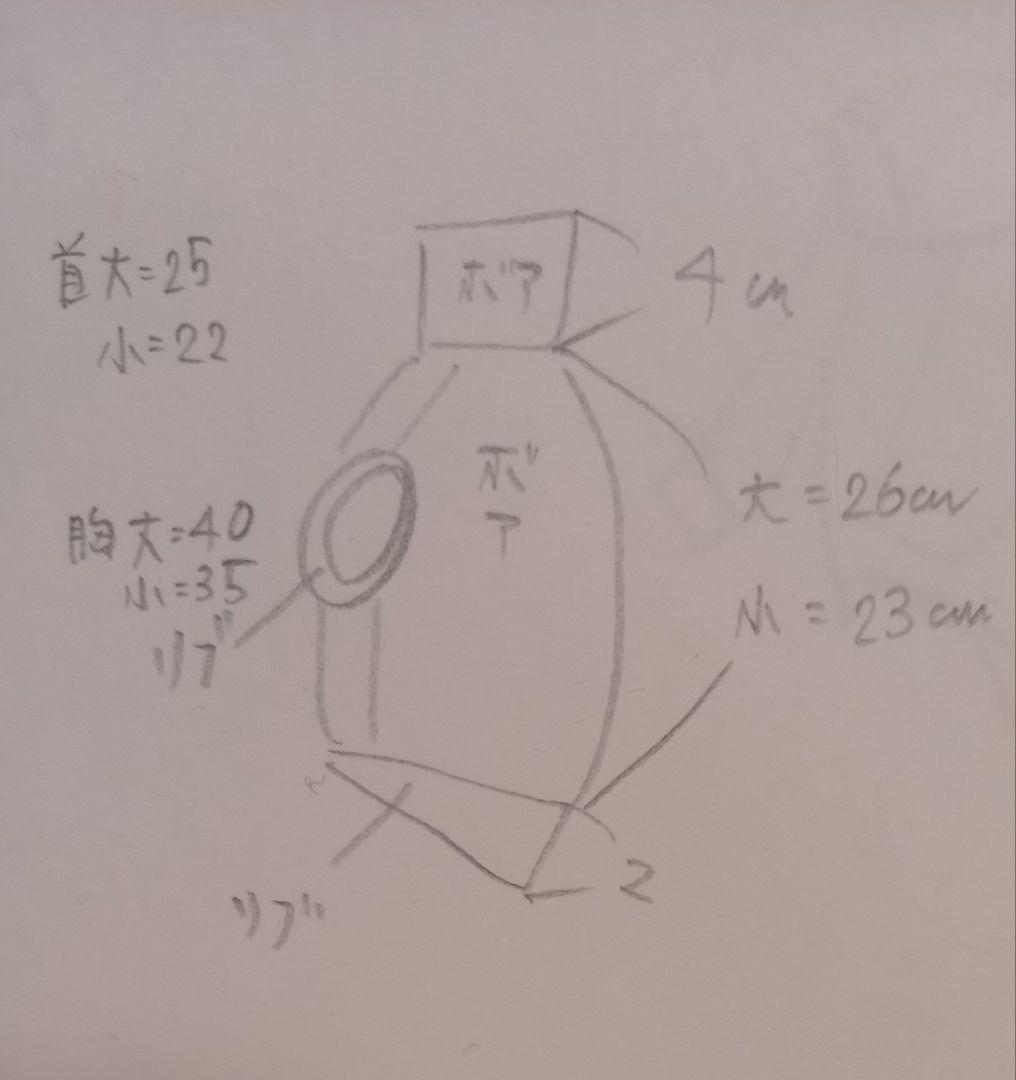 ボア
4cm
首大=25
小=22
ボア
大=26cm
小=23cm
胸大=40
小=35
リブ
2
リブ